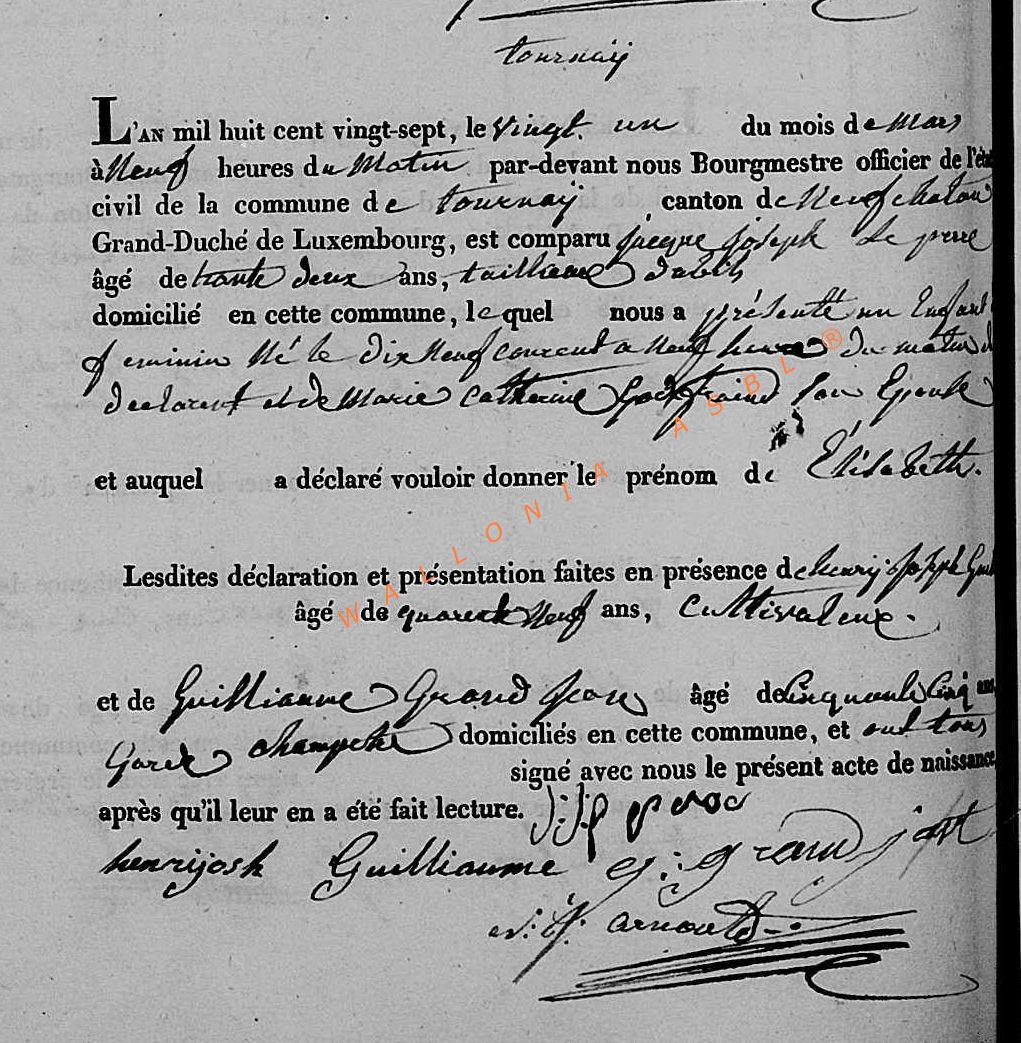 tournaÿ
L'AN mil huit cent vingt-sept, le vingt un du mois de Mars
à Neuf heures du Matin par-devant nous Bourgmestre officier de l'état
civil de la commune de tournaÿ, canton de Neufchatau
Grand-Duché de Luxembourg, est comparu jacque joseph
âgé de trante deux ans, tailliaeur dabits
domicilié en cette commune, lequel nous a présenté un Enfant
feminin Né le dix Neuf courent a Neuf heures du matin d
declarent et de Marie Catherine Godfraind Son Epouse
et auquel a déclaré vouloir donner le prénom de Elisabeth.
Lesdites déclaration et présentation faites en présence de henrij joseph
âgé de quarente Neuf ans, Cultivateur.
et de Guilliaume Grand jean âgé de Cinquante Cinq ans
Garde champetre domiciliés en cette commune, et ont tous
signé avec nous le présent acte de naissance
après qu'il leur en a été fait lecture.
henrijosk Guilliaume grand
arnould
WALLONIA ASBL ®